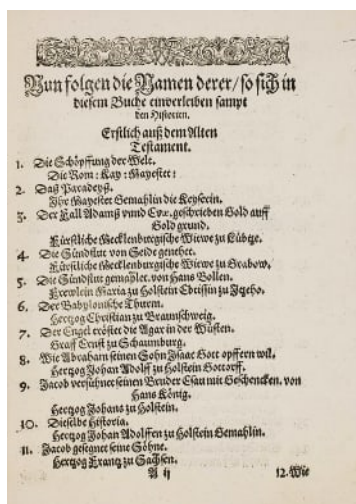 Nun folgen die Namen derer/ so sich in
diesem Buche einverleiben sampt
den Historien.
Erstlich auß dem Alten
Testament.
1. Die Schöpffung der Welt.
Die Röm: Kay: Mayestet:
2. Daß Paradeyß.
Ihr Mayestet Gemahlin die Keyserin.
3. Der Fall Adamß vnnd Evæ, geschrieben Gold auff
Gold grund.
Fürstliche Mecklenburgische Wittwe zu Lübtze.
4. Die Sündflut von Seide genehet.
Fürstliche Mecklenburgische Wittwe zu Grabow.
5. Die Sündflut gemahlet, von Hans Bollen.
Frewlein Maria zu Holstein Ebtissin zu Itzeho.
6. Der Babylonische Thurm.
Hertzog Christian zu Braunschweig.
7. Der Engel tröstet die Agar in der Wüsten.
Graff Ernst zu Schaumburg.
8. Wie Abraham seinen Sohn Isaac Gott opffern wil.
Hertzog Johan Adolff zu Holstein Gottorff.
9. Jacob versühnet seinen Bruder Esau mit Geschencken, von
Hans König.
Hertzog Johans zu Holstein.
10. Dieselbe Historia.
Hertzog Johan Adolffen zu Holstein Gemahlin.
11. Jacob gesegnet seine Söhne.
Hertzog Frantz zu Sachsen.
A ij 12. Wie